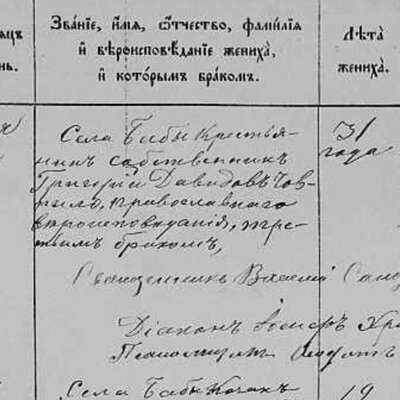 Званіе, имя, отчество, фамилія
и вѣроисповѣданіе жениха,
и которымъ бракомъ.
Лѣта
жениха.
Села Бабы крестья-
нинъ собственникъ
Григорій Давидовъ
православнаго
вѣроисповѣданія, тре-
тьимъ бракомъ,
31
года
Священникъ Василій
Діаконъ Іосифъ
Псаломщикъ
Села Бабы Козакъ
19